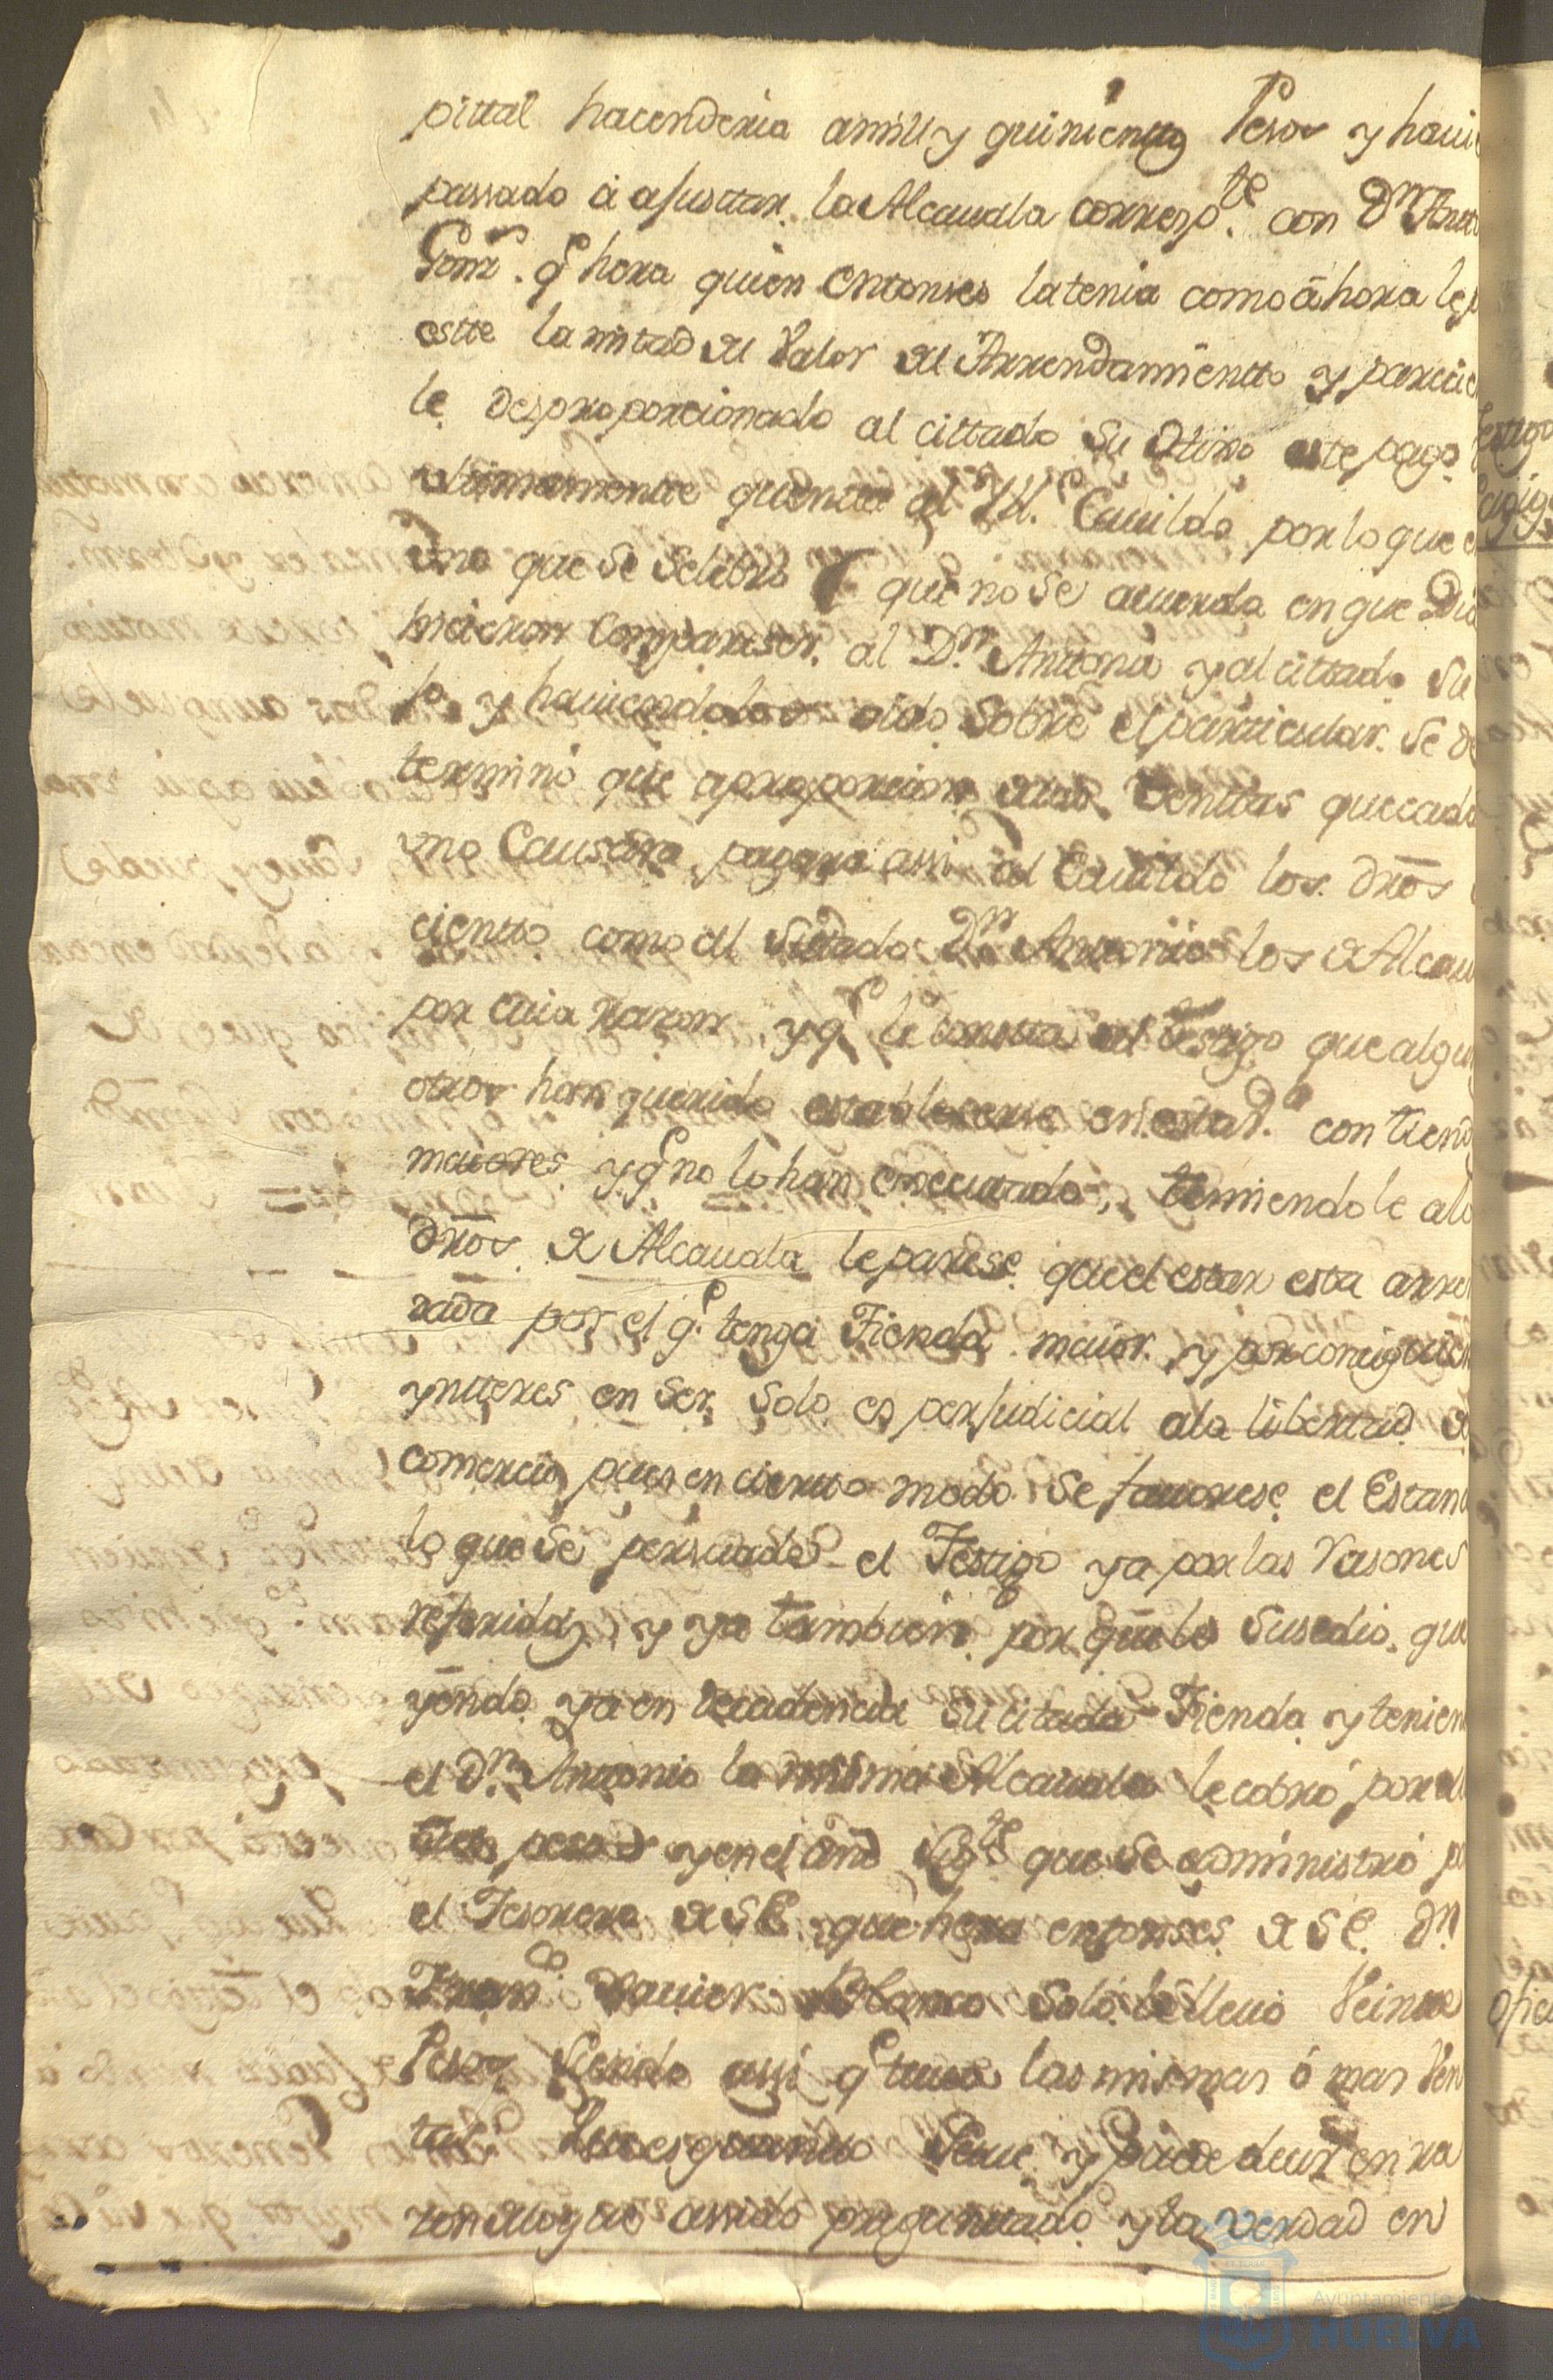 pittal hacenderia a mill y quinientos Pesos y havi
passado â ajusttar la Alcauala corresp.te con Dn Anto
Gomz. q.e hera quien entonses la tenia como âhora le p
estte la mitad del Valor del Arrendamientto y parecie
le desproporcionado al cittado su este pago
ultimamente quenta al Ill.e Cauildo por lo que e
uno que se selebró que no se acuerda en que Dia
hicieron Compareser al D.n Antonio y al cittado su
to y hauiendolos oido sobre el particular se de
terminó que aproporcion delas Venttas que cada
uno Causára, pagara assi al Cauildo los drōs
cientto como al Sitado D.n Antonio los de Alcau
por cuia razon, y q.e le consta al testigo que algu
otros han querido establecerse en esta V.a con tiend
maiores y q.e no lo han executado, temiendole alo
drōs de Alcauala le parese que el estar esta arren
dada por el q.e tenga Tienda maior y por consiguien
ynteres en ser solo es perjudicial ala libertad de
comercio, pues en cierto modo se fauorese el Estan
lo que se persuade el Testigo ya por las Rasones
referidas, y ya tambien por q.e le susedio, que
yendo ya en decadencia su citada Tienda y tenien
el D.n Antonio la misma Alcauala le cobró por
tres pesos y en el año sig.te que se administró p
el Tesorero de S E que hera entonses de S E. D.n
Fran.co Xauier Blanco solo le lleuó Veinte
Pesos siendo assi q.e tuuo las mismas ó mas Ven
tas: Que es quanto saue y puede decir en ra
zon delo que assido preguntado y la verdad en
Ayuntamiento
HUELVA